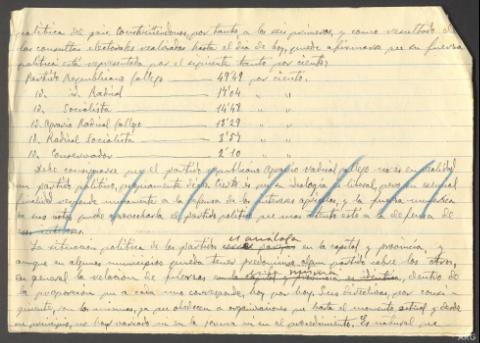 política del país constituíndonos, por tanto a los seis primeros, y como resultado de
las consultas electorales realizadas hasta el día de hoy, puede afirmarse que su fuerza
política está representada por el siguiente tanto por ciento:
Partido Republicano Gallego ——— 48'49 por ciento.
id. id Radical ——— 17'04 " "
id. Socialista ——— 14'48 " "
id. Agrario Radical Gallego ——— 13'29 " "
id. Radical Socialista ——— 3'57 " "
id. Conservador ——— 2'10 " "
Debe consignarse que el partido republicano Agrario radical gallego no es en realidad
un partido político, propiamente dicho. Cierto es que su ideología es liberal, pero su esencial
finalidad responde únicamente a la defensa de los intereses agrícolas, y la fuerza numérica
en sus votos puede aprovecharla el partido político que mas atento esté a la defensa de
La situación política de los partidos es análoga en la capital y provincia, y
aunque en algunos municipios pueda tener predominio algun partido sobre los otros,
en general la relación de fuerzas es la misma, dentro de
la proporción que a cada uno corresponde, hoy por hoy. Sus directivas, por consi-
guiente, son las mismas, ya que obedecen a organizaciones que hasta el momento actual y desde
un principio, no han variado ni en la forma ni en el procedimiento. Es natural que
ARG